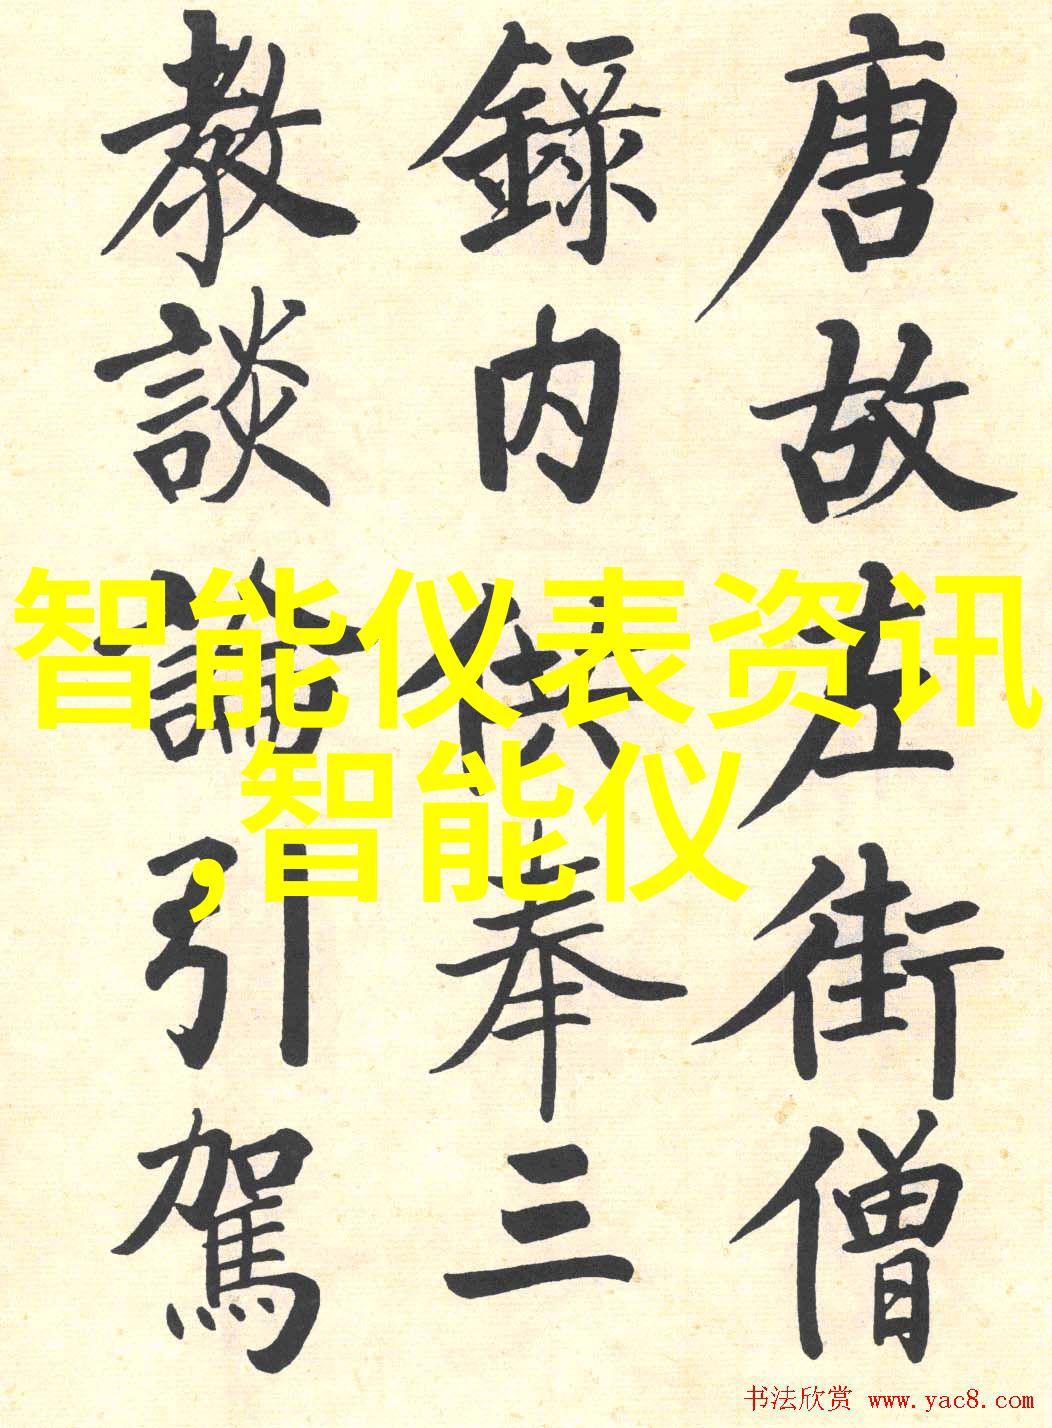 唐故左街僧
錄內供奉三
教談論引駕
智能仪表资讯
,智能仪
书法欣赏 www.yac8.com